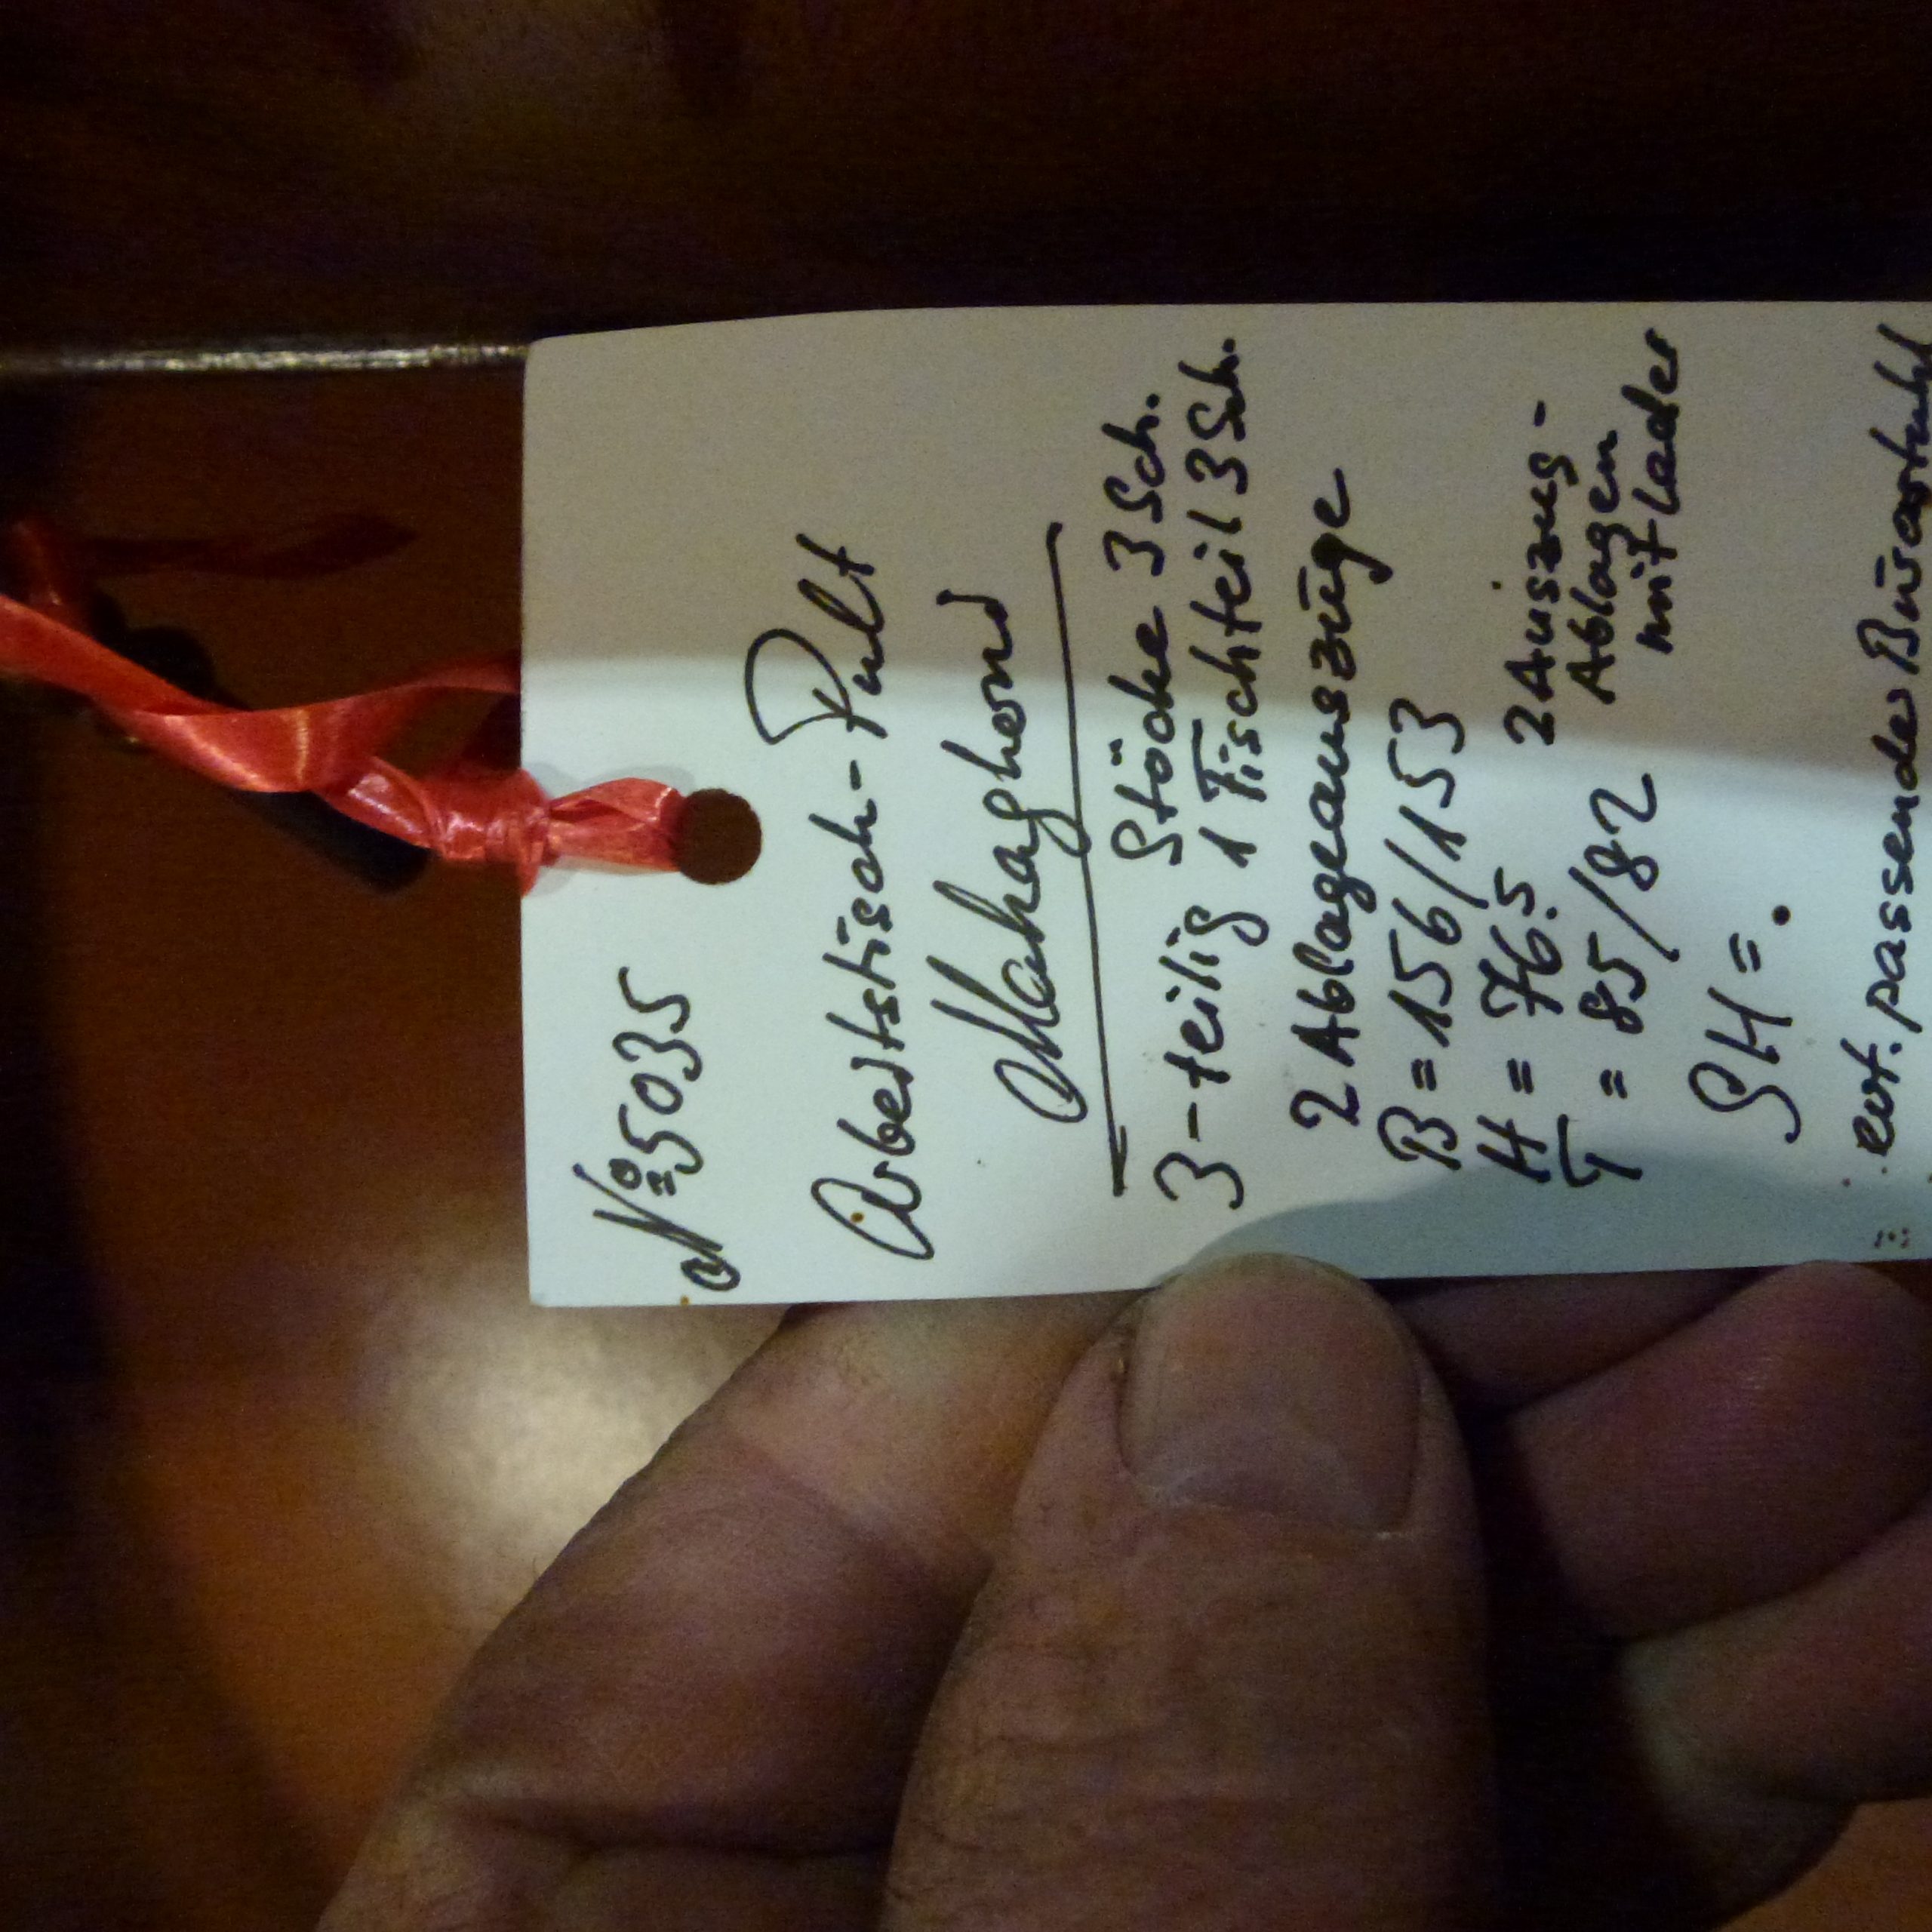 No 5035
Arbeitstisch-Pult
Mahaghoni
3-teilig Stöcke 3 Sch.
1 Tischteil 3 Sch.
2 Ablageauszüge
B = 156/153
H = 76.5 2 Auszug-
Ablagen
T = 85/82 mit Leder
SH = .
evt. passender Bürostuhl